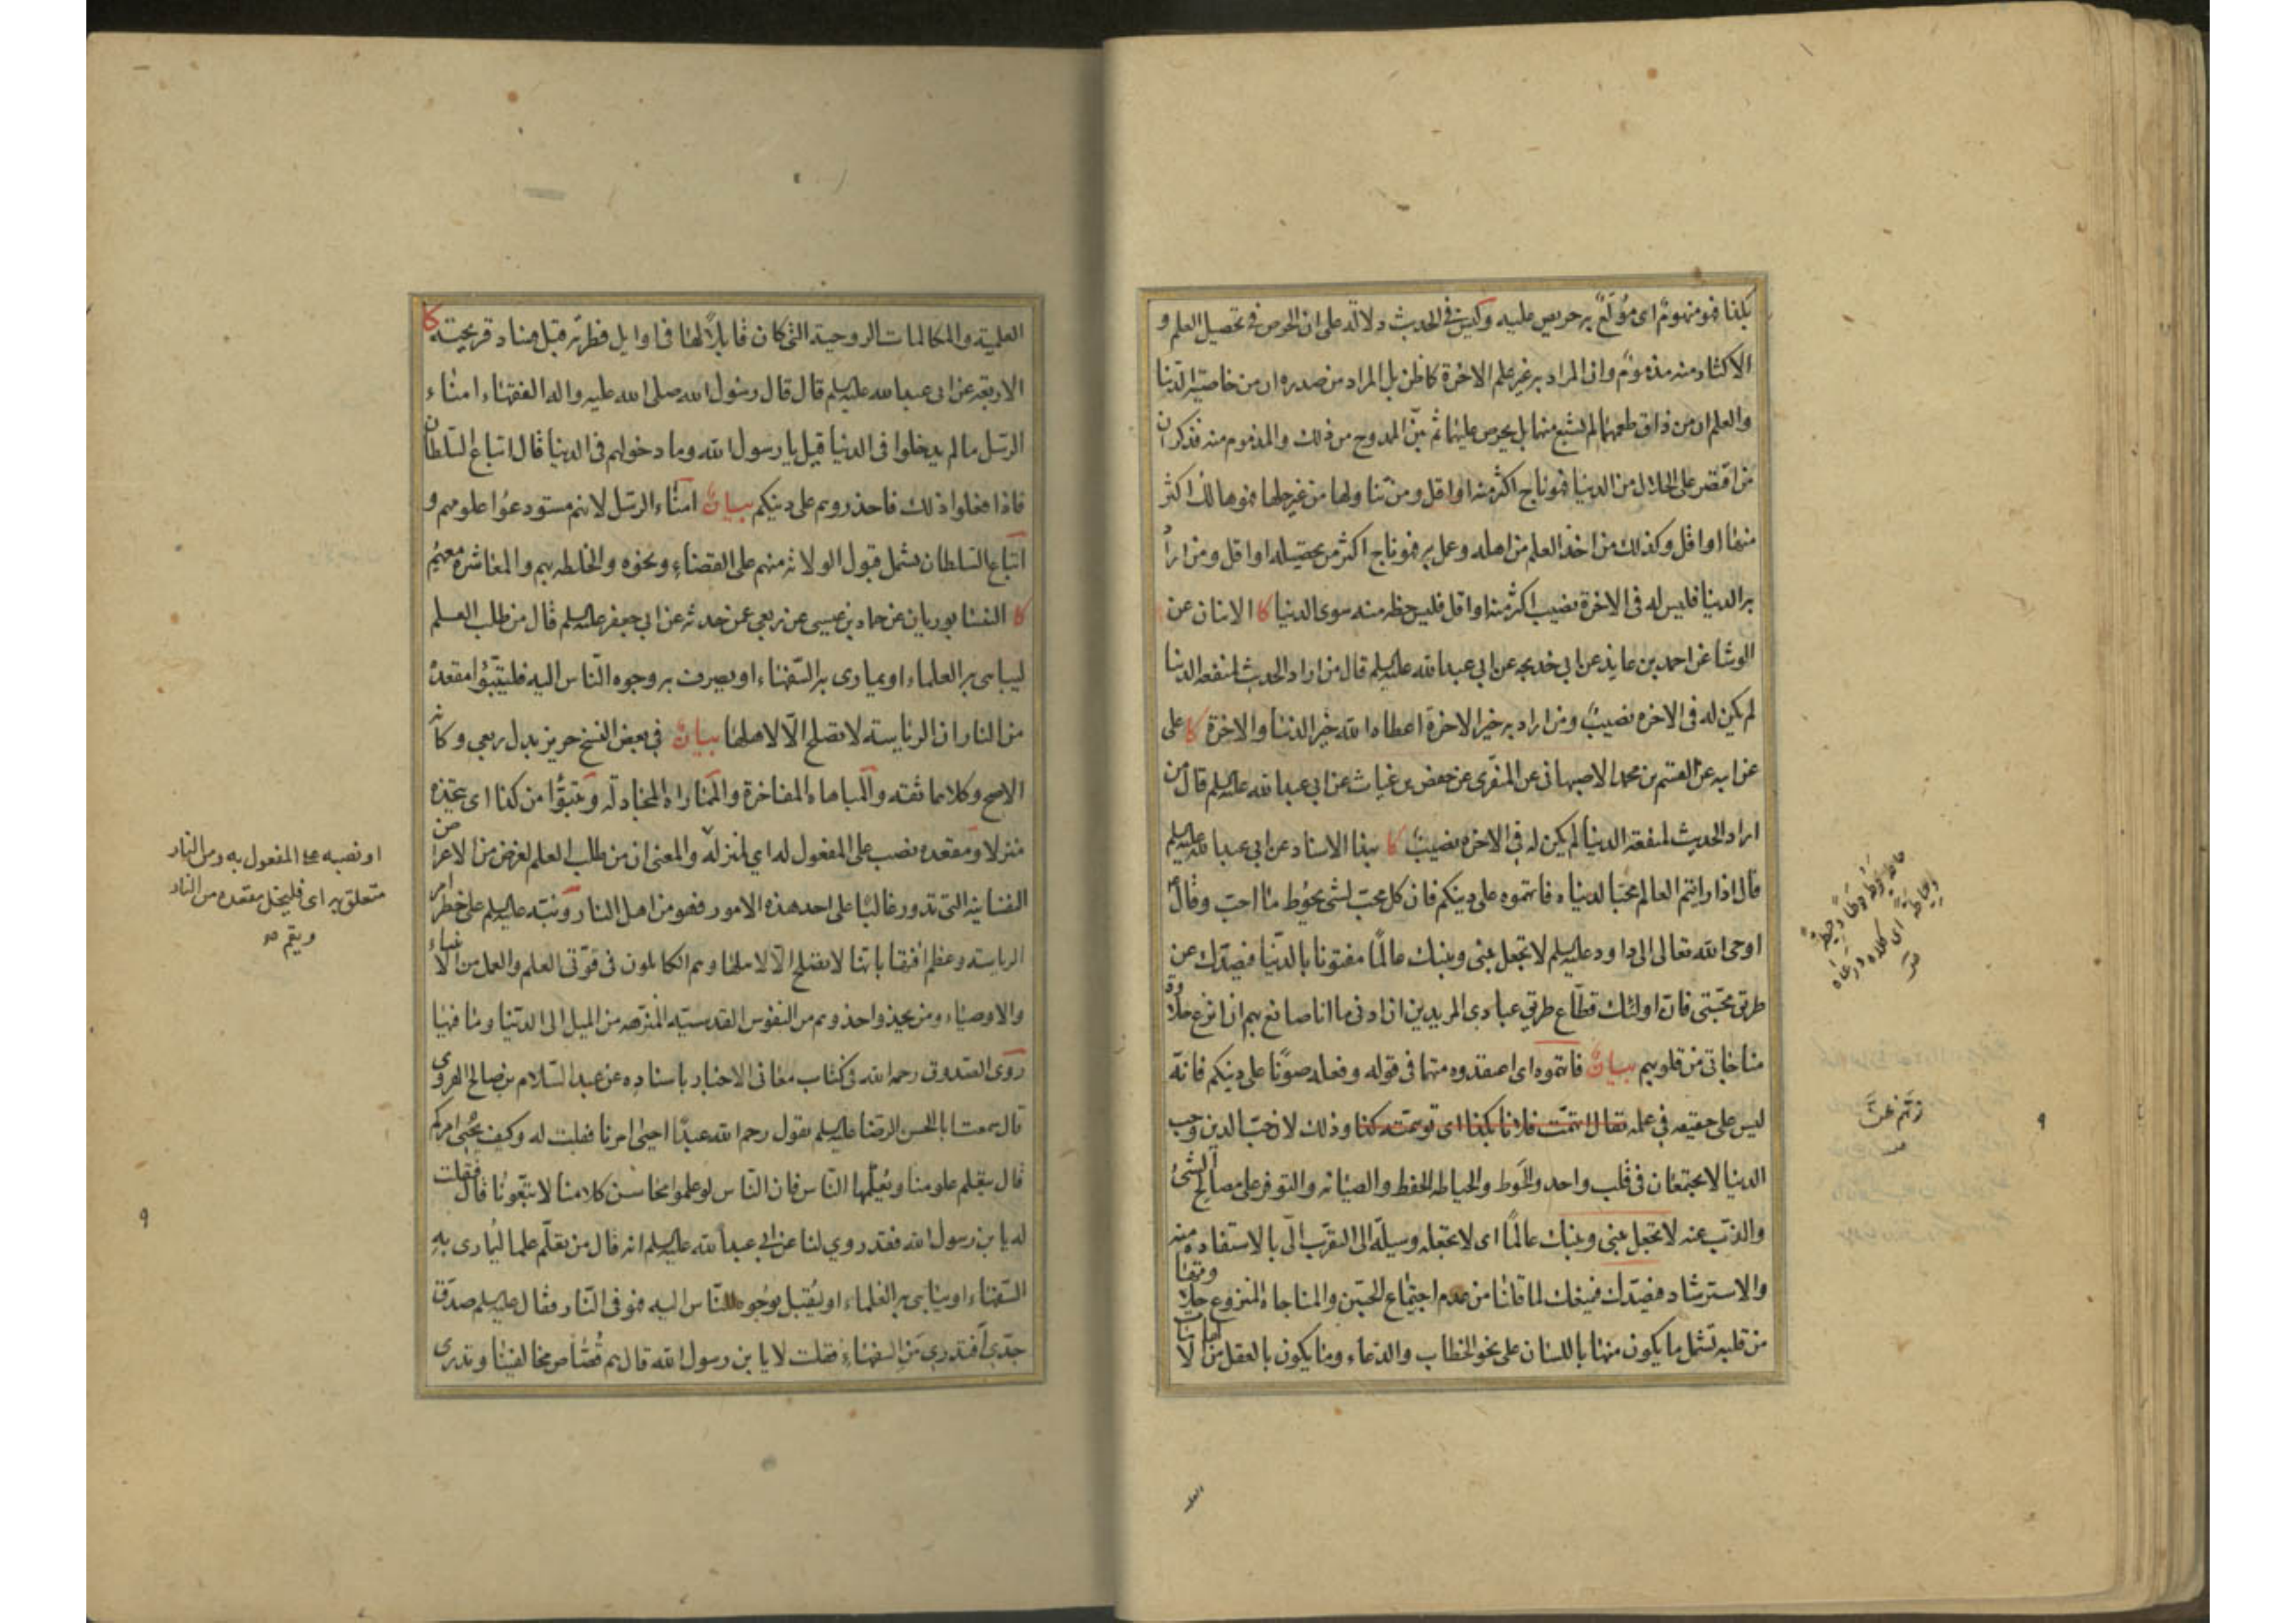 بكذا فهو منهوم اى مولع به حريص عليه وليس فى الحديث دلالة على ان الحرص فى تحصيل العلم و
الاكثار منه مذموم وان المراد به غير علم الاخرة كما ظن بل المراد من صدره ان من خاصية الدنيا
والعلم ان من ذاق طعمهما لم يشبع منهما بل يحرص عليهما ثم بين الممدوح من ذلك والمذموم منه فذكر ان
من اقتصر على الحلال من الدنيا فهو ناج اكثر منها او اقل ومن تناولها من غير حلها فهو هالك اكثر
منها او اقل وكذلك من اخذ العلم من اهله وعمل به فهو ناج اكثر من تحصيله او اقل ومن اراد
به الدنيا فليس له فى الاخرة نصيب اكثر منه او اقل فليس حظه منه سوى الدنيا كا الاثنان عن
الوشا عن احمد بن عايذ عن ابى خديجه عن ابى عبدالله عليه السلم قال من اراد الحديث لمنفعة الدنيا
لم يكن له فى الاخرة نصيب ومن اراد به خير الاخرة اعطاه الله خير الدنيا والاخرة كا على
عن ابيه عن القسم بن محمد الاصبهانى عن المنقرى عن حفص بن غياث عن ابى عبدالله عليه السلم قال من
اراد الحديث لمنفعة الدنيا لم يكن له فى الاخرة نصيب كا بهذا الاسناد عن ابى عبدالله عليه السلم
قال اذا رايتم العالم محبا لدنياه فاتهموه على دينكم فان كل محب لشئ يحوط ما احب وقال
اوحى الله تعالى الى داود عليه السلم لا تجعل بينى وبينك عالما مفتونا بالدنيا فيصدك عن
طريق محبتى فان اولئك قطاع طريق عبادى المريدين ان ادنى ما انا صانع بهم ان انزع حلاوة
مناجاتى من قلوبهم بيان فاتهموه اى اعتقدوه متهما فى قوله وفعله صونا على دينكم فانه
ليس على حقيقه فى علمه يقال اتهمت فلانا بكذا اى توهمته كذا وذلك لان حب الدين وحب
الدنيا لا يجتمعان فى قلب واحد والحوط والحياطه الحفظ والصيانه والتوفر على مصالح الشئ
والذب عنه لا تجعل بينى وبينك عالما اى لا تجعله وسيلة الى التقرب الى بالاستفادة منه
والاسترشاد فيصدك فيمنعك لما قلنا من عدم اجتماع الحبين والمناجاة المنزوع حلاوتها
من قلبه تشمل ما يكون منها باللسان على نحو الخطاب والدعاء وما يكون بالعقل من الالهامات
حاطه حوطا وحيطة
وحياطة اى كلاه ورعاه
ص
العلمية والمكالمات الروحية التى كان قابلا لها فى اوايل فطرته قبل فساد قريحته كا
الاربعه عن ابى عبدالله عليه السلم قال قال رسول الله صلى الله عليه واله الفقهاء امناء
الرسل ما لم يدخلوا فى الدنيا قيل يا رسول الله وما دخولهم فى الدنيا قال اتباع السلطان
فاذا فعلوا ذلك فاحذروهم على دينكم بيان امناء الرسل لانهم مستودعوا علومهم و
اتباع السلطان يشمل قبول الولاية منهم على القضاء ونحوه والخلطه بهم والمعاشره معهم
كا النيسابوريان عن حماد بن عيسى عن ربعى عمن حدثه عن ابى جعفر عليه السلم قال من طلب العلم
ليباهى به العلماء او يمارى به السفهاء او يصرف به وجوه الناس اليه فليتبوا مقعده
من النار ان الرئاسة لا تصلح الا لاهلها بيان فى بعض النسخ حريز بدل ربعى وكانه
الاصح وكلاهما ثقة والمباهاه المفاخرة والمماراه المجادلة وتبوا من كذا اى يتخذه
منزلا ومقعده نصب على المفعول له اى لمنزله والمعنى ان من طلب العلم لغرض من الاغراض
النفسانيه التى تدور غالبا على احد هذه الامور فهو من اهل النار ونبه عليه السلم على خطر امر
الرياسة وعظم افتها بانها لا تصلح الا لاهلها وهم الكاملون فى قوتى العلم والعمل من الانبياء
والاوصياء ومن يحذو حذوهم من النفوس القدسيه المنزهه من الميل الى الدنيا وما فيها
روى الصدوق رحمه الله فى كتاب معانى الاخبار باسناده عن عبد السلام بن صالح الهروى
قال سمعت ابا الحسن الرضا عليه السلم يقول رحم الله عبدا احيى امرنا فقلت له وكيف يحيى امركم
قال يتعلم علومنا ويعلمها الناس فان الناس لو علموا محاسن كلامنا لاتبعونا قال فقلت
له يا بن رسول الله فقد روى لنا عن ابى عبدالله عليه السلم انه قال من تعلم علما ليمارى به
السفهاء او يباهى به العلماء او يقبل بوجوه الناس اليه فهو فى النار فقال عليه السلم صدق
جدى افتدرى من السفهاء فقلت لا يا بن رسول الله قال هم قصاص مخالفينا وتدرى
او نصبه على المفعول به ومن النار
متعلق به اى فليتخذ مقعده من النار
ويقم
٩
٩